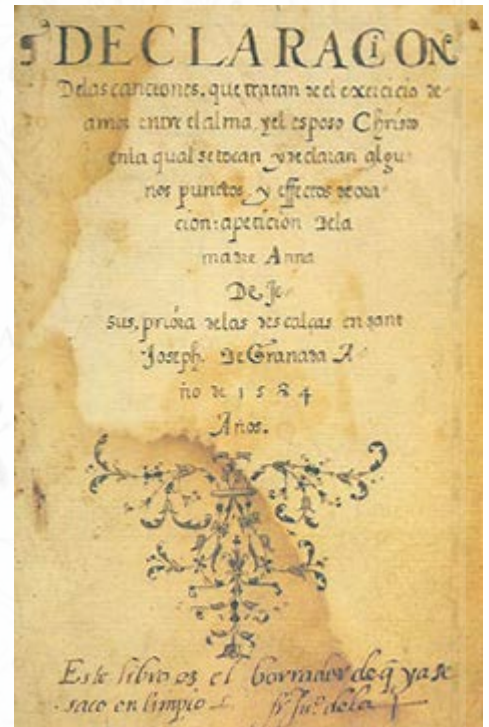 DECLARACiON
Delas canciones, que tratan de el exercicio de
amor entre el alma, y el esposo Christo
enla qual se tocan y declaran algu
nos punctos y effectos de ora
cion: a peticion dela
madre Anna
De Je
sus, priora delas descalças en sant
Joseph. De Granada A
ño de 1584
Años.
Este libro es el borrador de q̃ ya se
saco en limpio fr Juº dela +